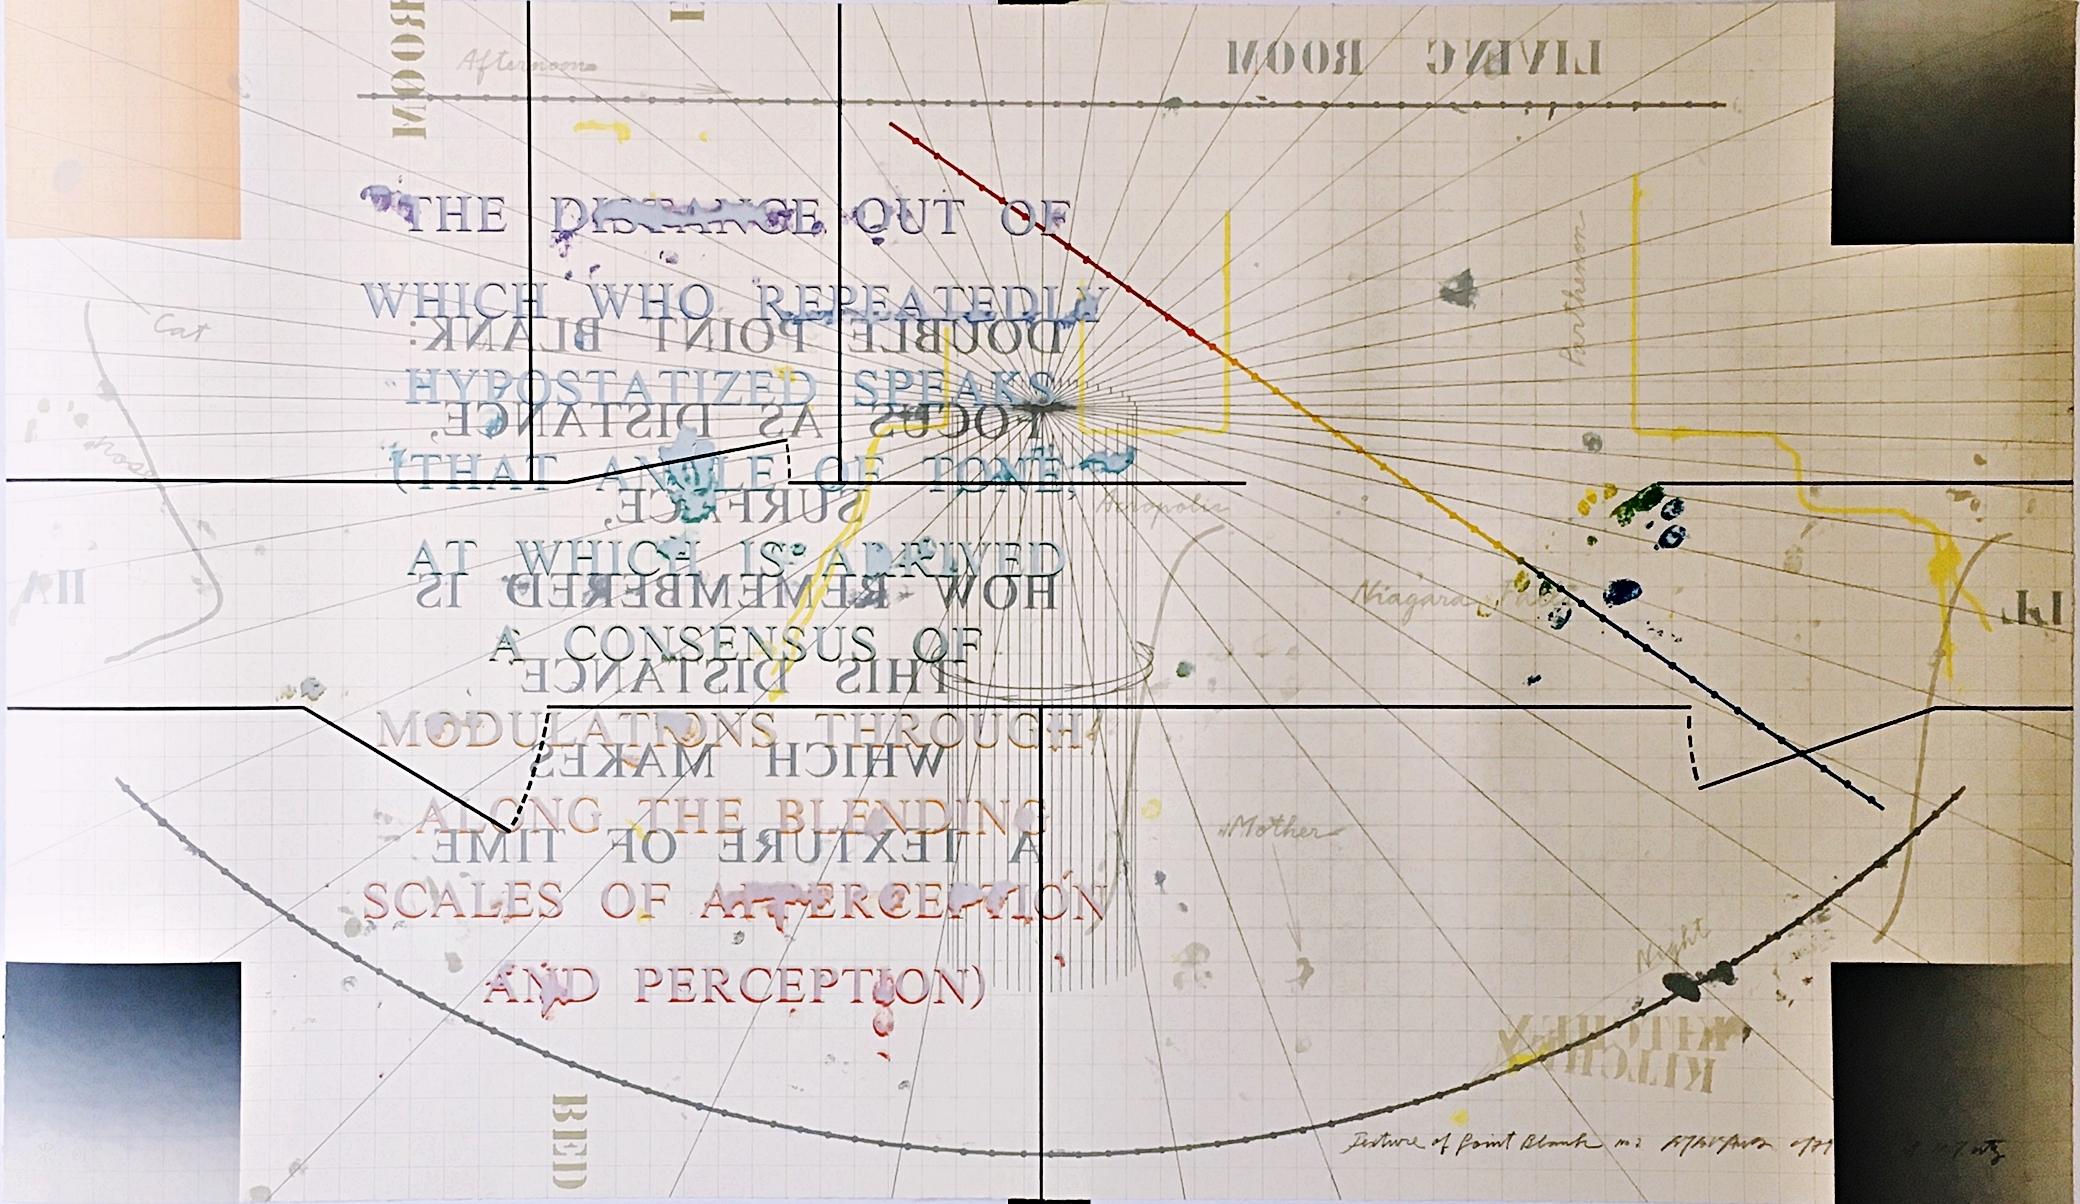 ROOM
Afternoon
LIVING ROOM
THE DISTANCE OUT OF
WHICH WHO REPEATEDLY
DOUBLE POINT BLANK:
HYPOSTATIZED SPEAKS
FOCUS AS DISTANCE,
(THAT ANGLE OF TONE,
SURFACE,
AT WHICH IS ARRIVED
HOW REMEMBERED IS
A CONSENSUS OF
THIS DISTANCE
MODULATIONS THROUGH
WHICH MAKES
ALONG THE BLENDING
A TEXTURE OF TIME
SCALES OF APPERCEPTION
AND PERCEPTION)
Cat
Parthenon
Acropolis
Niagara Falls
Mother
Night
KITCHEN
KITCHEN
BED
Texture of Point Blank